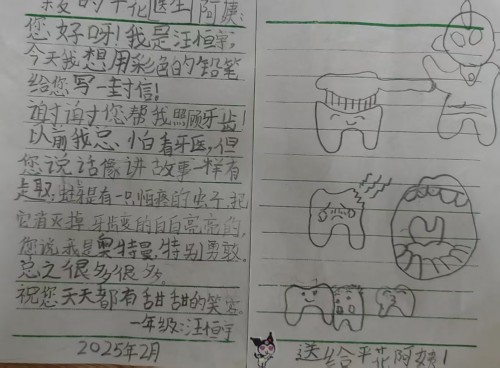 亲爱的平花医生阿姨:
您好呀!我是汪恒宇,
今天我想用彩色的铅笔
给您写一封信!
谢谢您帮我照顾牙齿!
以前我总怕看牙医,但
您说话像讲故事一样有
趣,就是有一只怕疼的虫子,把
它消灭掉,牙齿变的白白亮亮的,
您说我是奥特曼,特别勇敢。
总之很多很多。
祝您天天都有甜甜的笑容。
一年级:汪恒宇
2025年2月
送给平花阿姨!